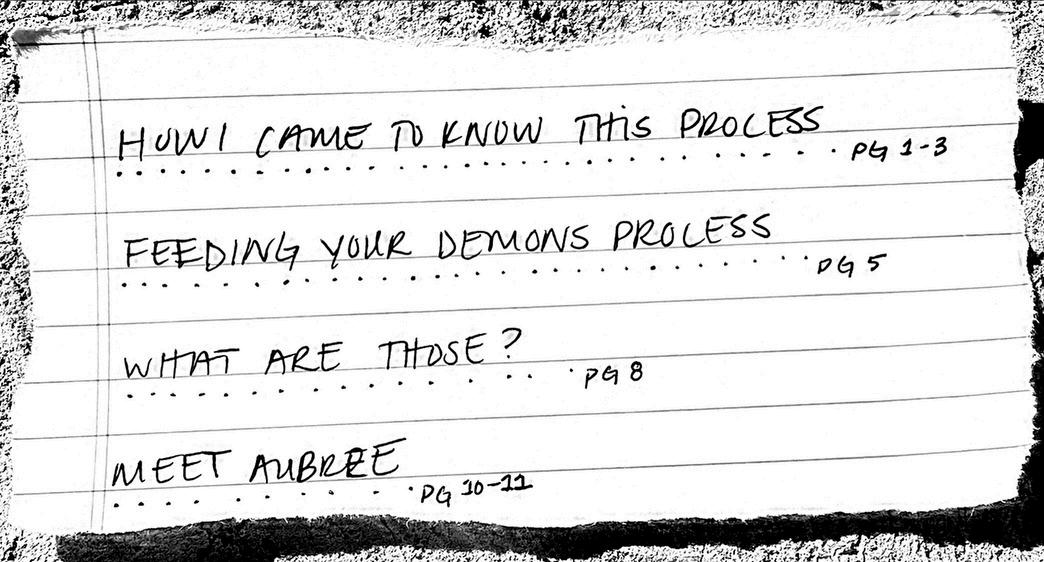 HOW I CAME TO KNOW THiS PROCESS
. . . . . . . . . . . . . . . . . . . . . . . . . . . . . . PG 1-3
FEEDING YOUR DEMONS PROCESS
. . . . . . . . . . . . . . . . . . . . . . . . . . . . PG 5
WHAT ARE THOSE?
. . . . . . . . . . . . . . . . PG 8
MEET AUBREE
. . . . . . . . . . PG 10-11